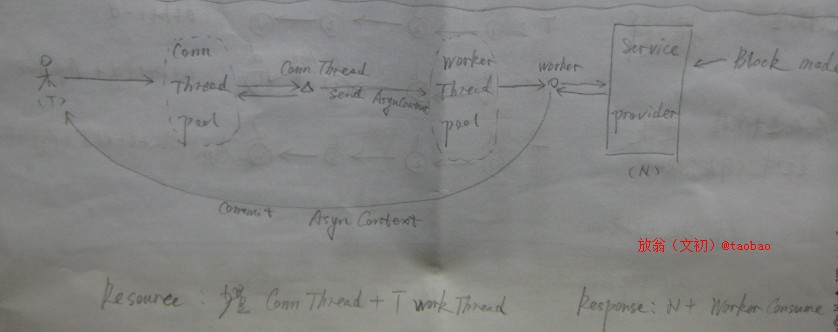 Conn
Thread
pool
(T)
Conn Thread
send AsynContext
worker
Thread
pool
worker
Service
provider
(N)
Block mode
Commit AsynContext
放翁（文初）@taobao
Resource: 少量 Conn Thread + T work Thread
Response: N + Worker Consume